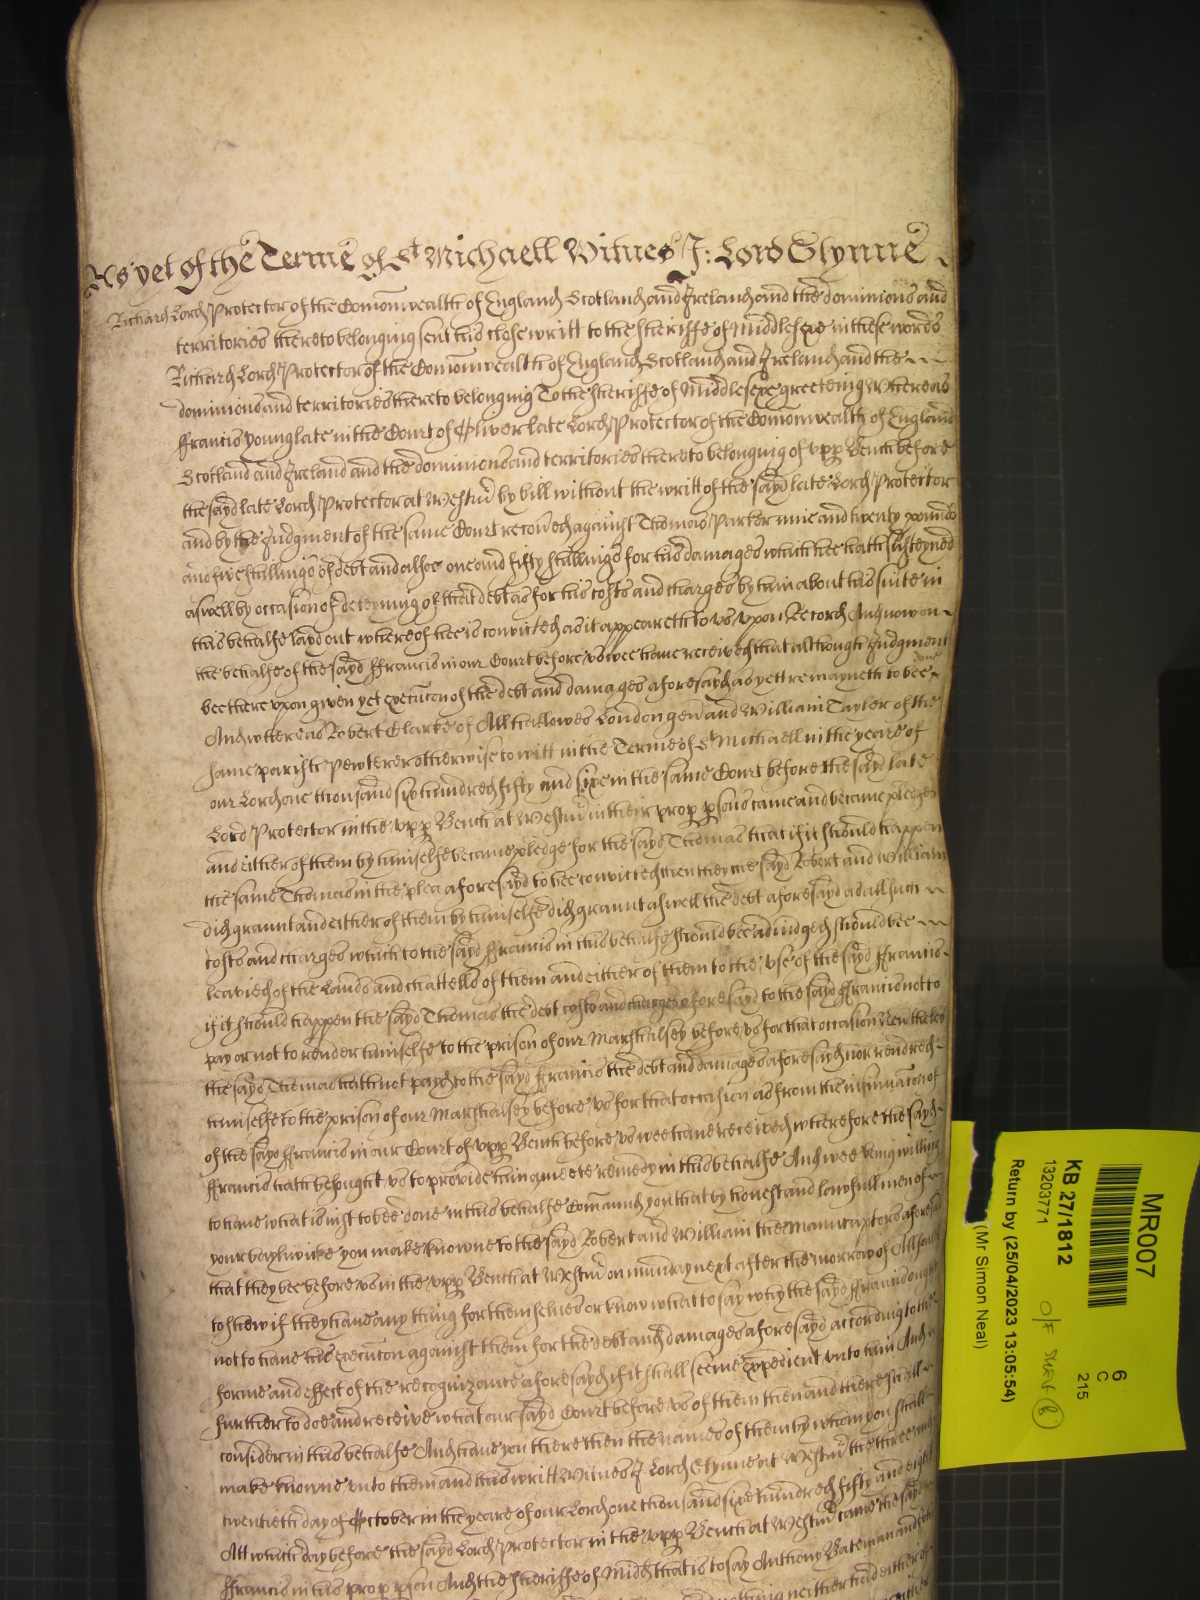 As yet of the Terme of St Michaell Witnes J: Lord Glynne
Richard Lord Protector of the Comonwealth of England Scotland and Ireland and the dominions and
territories thereto belonging sent his close writt to the Sheriffe of Middlesexe in these words
Richard Lord Protector of the Comonwealth of England Scotland and Ireland and the
dominions and territories thereto belonging To the Sheriffe of Middlesexe greeteing Whereas
ffrancis Young late in the Court of Oliver late Lord Protector of the Comonwealth of England
Scotland and Ireland and the dominions and territories thereto belonging of upp Bench before
the sayd late Lord Protector at Westm by bill without the writt of the sayd late Lord Protector
and by the Judgment of the same Court recoved against Thomas Parker nine and twenty pounds
and five shillings of debt and alsoe one and fifty shillings for his damages which hee hath susteyned
aswell by occasion of deteyning of that debt as for his costs and charges by him about his suite in
this behalfe layd out whereof hee is convicted as it appeareth to us upon Record And now on
the behalfe of the sayd ffrancis in our Court before us wee have received that although Judgment
bee there upon given yet execucon of the debt and damages aforesayd as yett remayneth to bee done
And whereas Robert Clarke of All hallowes London gen and William Tayler of the
same parish Pewterer otherwise to witt in the Terme of St Michaell in the yeare of
our Lord one thousand six hundred fifty and sixe in the same Court before the sayd late
Lord Protector in the upp Bench at Westm in their prop psons came and became pledges
and either of them by himselfe became pledge for the sayd Thomas that if it should happen
the same Thomas in the plea aforesayd to bee convicted then they the sayd Robert and William
did graunt and either of them by himselfe did graunt aswell the debt aforesayd as all such
costs and charges which to the sayd ffrancis in this behalfe should bee adiudged should bee
leavied of the Lands and chattells of them and either of them to the use of the sayd ffrancis
if it should happen the sayd Thomas the debt costs and charges aforesayd to the sayd ffrancis not to
pay or not to render himselfe to the prison of our Marshalsey before us for that occasion Neverthelesse
the sayd Thomas hath not payd to the sayd ffrancis the debt and damages aforesayd nor rendred
himselfe to the prison of our Marshalsey before us for that occasion as from the insinuacon of
of the sayd ffrancis in our Court of upp Bench before us wee have received wherefore the sayd
ffrancis hath besought us to provide him a meete remedy in this behalfe And wee being willing
to have what is iust to bee done in this behalfe Comaund you that by honest and lawfull men of
your baylywicke you make knowne to the sayd Robert and William the Manucaptors aforesaid
that they bee before us in the upp Bench at Westm on munday next after the morrow of All soules
to shew if they have any thing for themselves or know what to say why the sayd ffrancis ought
not to have his execucon against them for the debt and damages aforesayd according to the
forme and effect of the recognizance aforesayd if it shall seeme expedient unto him And
further to doe and receive what our sayd Court before us of them then and there shall
consider in this behalfe And have you there then the names of them by whom you shall
make knowne unto them and this writt Witnes J Lord Glynne at Westm the three and
twentieth day of October in the yeare of our Lord one thousand sixe hundred fifty and eight
Att which day before the sayd Lord Protector in the upp Bench at Westm came the sayd
ffrancis in his prop pson And the Sheriffe of Midd that is to say Anthony Bateman and
nothing neither had either of

MR007
KB 27/1812
13203771
6
C
215
O/F Shelf 8
Return by (25/04/2023 13:05:54)
(Mr Simon Neal)